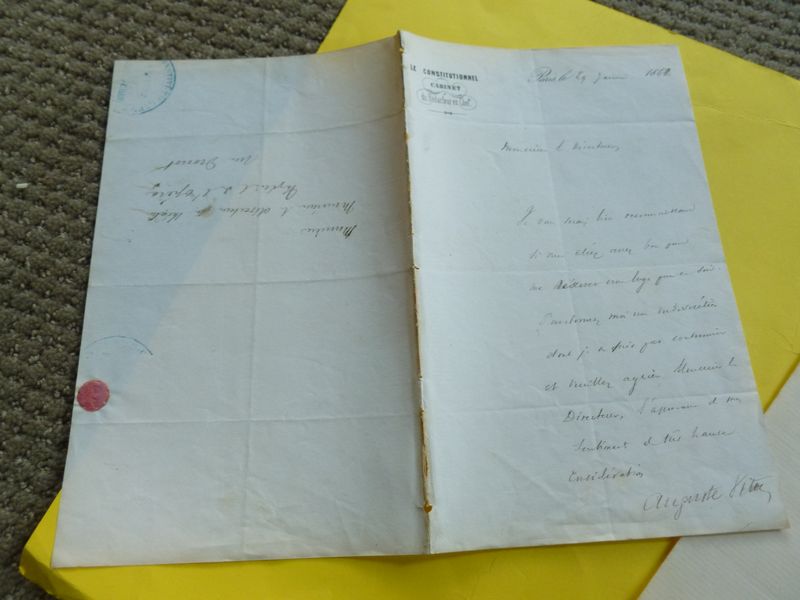 LE CONSTITUTIONNEL
CABINET
du Rédacteur en Chef
Paris le 29 1862
Monsieur le Directeur,
Je vous serais bien reconnaissant
si vous étiez assez bon pour
me réserver une loge pour ce soir.
Pardonnez moi une indiscrétion
dont je n'ai pas
et veuillez agréer Monsieur le
Directeur, l'assurance de mes
sentiments de très haute
considération
Auguste Vitu
Monsieur
Monsieur le directeur
de l'Opéra
rue Drouot